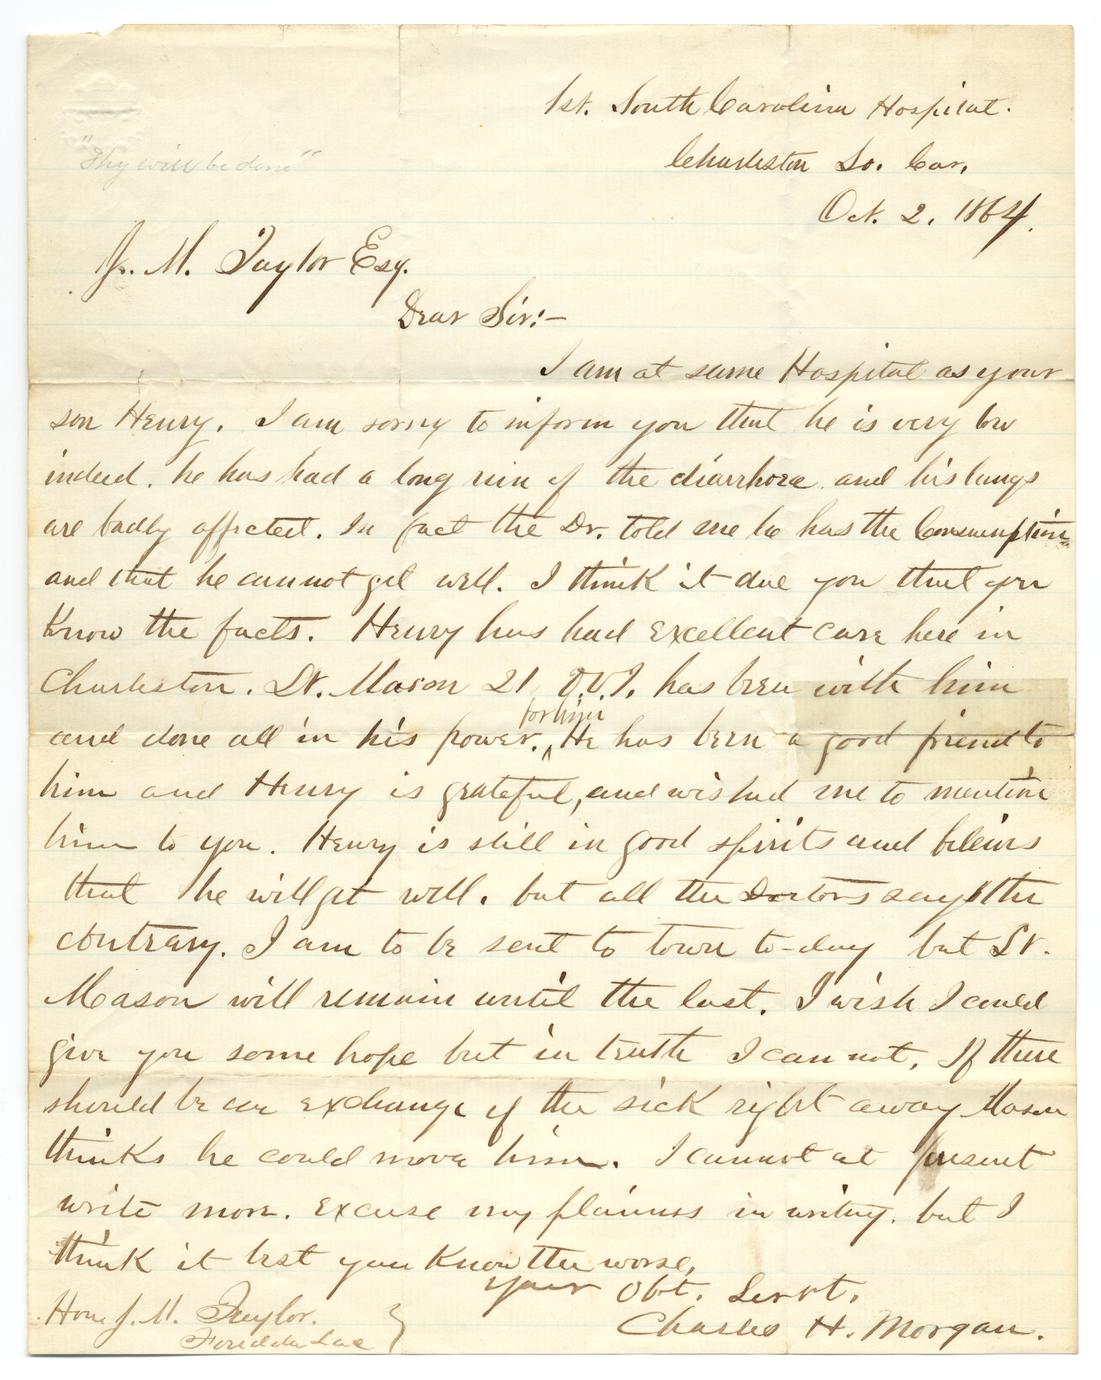 "Thy will be done"
1st. South Carolina Hospital.
Charleston So. Car.
Oct. 2. 1864.
J. M. Taylor Esq.
Dear Sir:—
I am at same Hospital as your
son Henry. I am sorry to inform you that he is very low
indeed. he has had a long run of the diarrhoea and his lungs
are badly affected. In fact the Dr. told me he has the Consumption
and that he cannot get well. I think it due you that you
Know the facts. Henry has had excellent care here in
Charleston. Lt. Mason 21 O.V.I. has been with him
for him
and done all in his power. ^ He has been a good friend to
him and Henry is grateful, and wished me to mention
him to you. Henry is still in good spirits and beleivs
that he will get well. but all the Doctors say the
contrary. I am to be sent to town to-day but Lt.
Mason will remain until the last. I wish I could
give you some hope but in truth I can not. If there
should be an exchange of the sick right away Mason
thinks he could move him. I cannot at present
write more. excuse my plainness in writing. but I
think it best you Know the worse.
Your Obt. Servt.
Charles H. Morgan.
Hon J. M. Taylor.
Fond du Lac